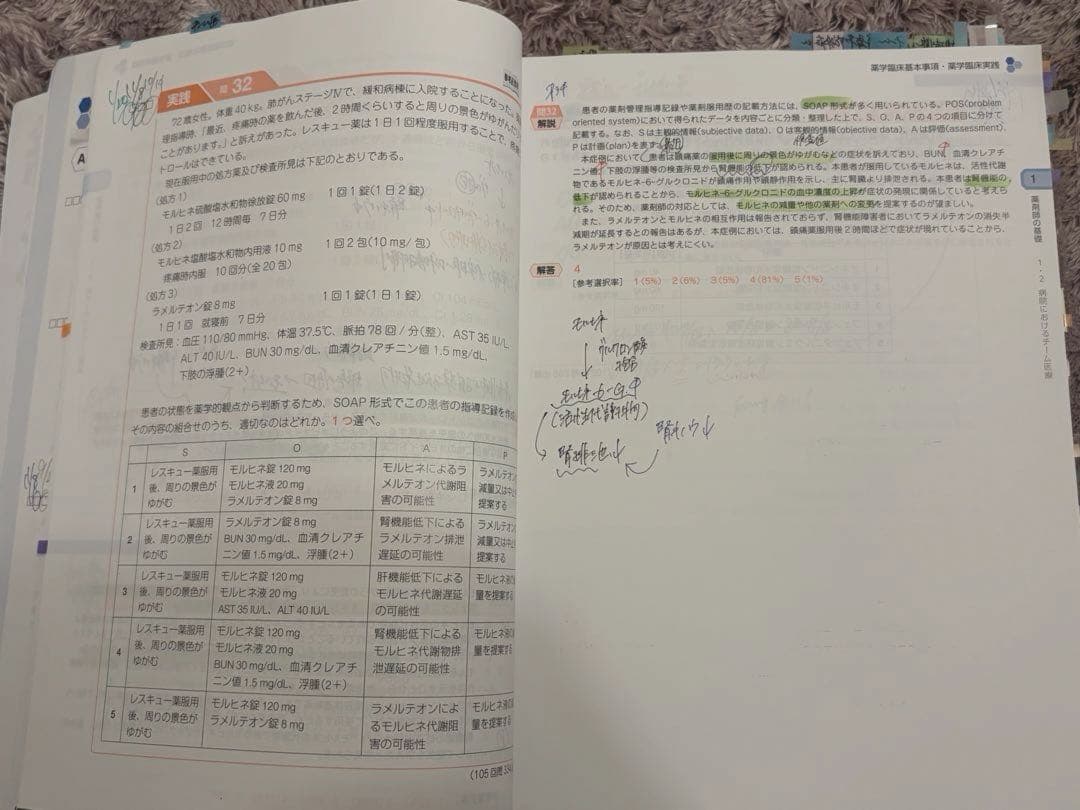 実践 問 32
72歳女性。体重40kg。肺がんステージⅣで、緩和病棟に入院することになった。
理指導時、「最近、疼痛時の薬を飲んだ後、2時間くらいすると周りの景色がゆがむ
ことがあります。」と訴えがあった。レスキュー薬は1日1回程度服用することで、
トロールはできている。
現在服用中の処方薬及び検査所見は下記のとおりである。
(処方1)
モルヒネ硫酸塩水和物徐放錠60mg 1回1錠(1日2錠)
1日2回 12時間毎 7日分
(処方2)
モルヒネ塩酸塩水和物内用液10mg 1回2包(10mg/包)
疼痛時内服 10回分(全20包)
(処方3)
ラメルテオン錠8mg 1回1錠(1日1錠)
1日1回 就寝前 7日分
検査所見:血圧110/80mmHg、体温37.5℃、脈拍78回/分(整)、AST 35 IU/L、
ALT 40 IU/L、BUN 30 mg/dL、血清クレアチニン値1.5 mg/dL、
下肢の浮腫(2+)
患者の状態を薬学的観点から判断するため、SOAP形式でこの患者の指導記録を作
その内容の組合せのうち、適切なのはどれか。1つ選べ。
S O A P
1 レスキュー薬服用後、周りの景色がゆがむ モルヒネ錠120mg モルヒネ液20mg ラメルテオン錠8mg モルヒネによるラメルテオン代謝阻害の可能性 ラメルテオ 減量又は中 提案する
2 レスキュー薬服用後、周りの景色がゆがむ ラメルテオン錠8mg BUN 30 mg/dL、血清クレアチニン値1.5 mg/dL、浮腫(2+) 腎機能低下によるラメルテオン排泄遅延の可能性 ラメルテオ 減量又は中止 提案する
3 レスキュー薬服用後、周りの景色がゆがむ モルヒネ錠120mg モルヒネ液20mg AST 35 IU/L、ALT 40 IU/L 肝機能低下によるモルヒネ代謝遅延の可能性 モルヒネ液の 量を提案する
4 レスキュー薬服用後、周りの景色がゆがむ モルヒネ錠120mg モルヒネ液20mg BUN 30 mg/dL、血清クレアチニン値1.5 mg/dL、浮腫(2+) 腎機能低下によるモルヒネ代謝物排泄遅延の可能性 モルヒネ液の 量を提案する
5 レスキュー薬服用後、周りの景色がゆがむ モルヒネ錠120mg ラメルテオン錠8mg ラメルテオンによるモルヒネ代謝阻害の可能性 モルヒネ液の 量を提案する
(105回問334
薬学臨床基本事項・薬学臨床実践
問32
解説
患者の薬剤管理指導記録や薬剤服用歴の記載方法には、SOAP形式が多く用いられている。POS(problem
oriented system)において得られたデータを内容ごとに分類・整理した上で、S、O、A、Pの4つの項目に分けて
記載する。なお、Sは主観的情報(subjective data)、Oは客観的情報(objective data)、Aは評価(assessment)、
Pは計画(plan)を表す。
本症例において、患者は鎮痛薬の服用後に周りの景色がゆがむなどの症状を訴えており、BUN、血清クレアチ
ニン値、下肢の浮腫等の検査所見から腎機能の低下が認められる。本患者が服用しているモルヒネは、活性代謝
物であるモルヒネ-6-グルクロニドが鎮痛作用や鎮静作用を示し、主に腎臓より排泄される。本患者は腎機能の
低下が認められることから、モルヒネ-6-グルクロニドの血中濃度の上昇が症状の発現に関係していると考えら
れる。そのため、薬剤師の対応としては、モルヒネの減量や他の薬剤への変更を提案するのが望ましい。
また、ラメルテオンとモルヒネの相互作用は報告されておらず、腎機能障害者においてラメルテオンの消失半
減期が延長するとの報告はあるが、本症例においては、鎮痛薬服用後2時間ほどで症状が現れていることから、
ラメルテオンが原因とは考えにくい。
解答 4
[参考選択率] 1(5%) 2(6%) 3(5%) 4(81%) 5(1%)
モルヒネ
グルクロン酸
抱合
モルヒネ-6-G↑
腎排泄↓
1
薬剤師の基礎
1・2 病院におけるチーム医療
A